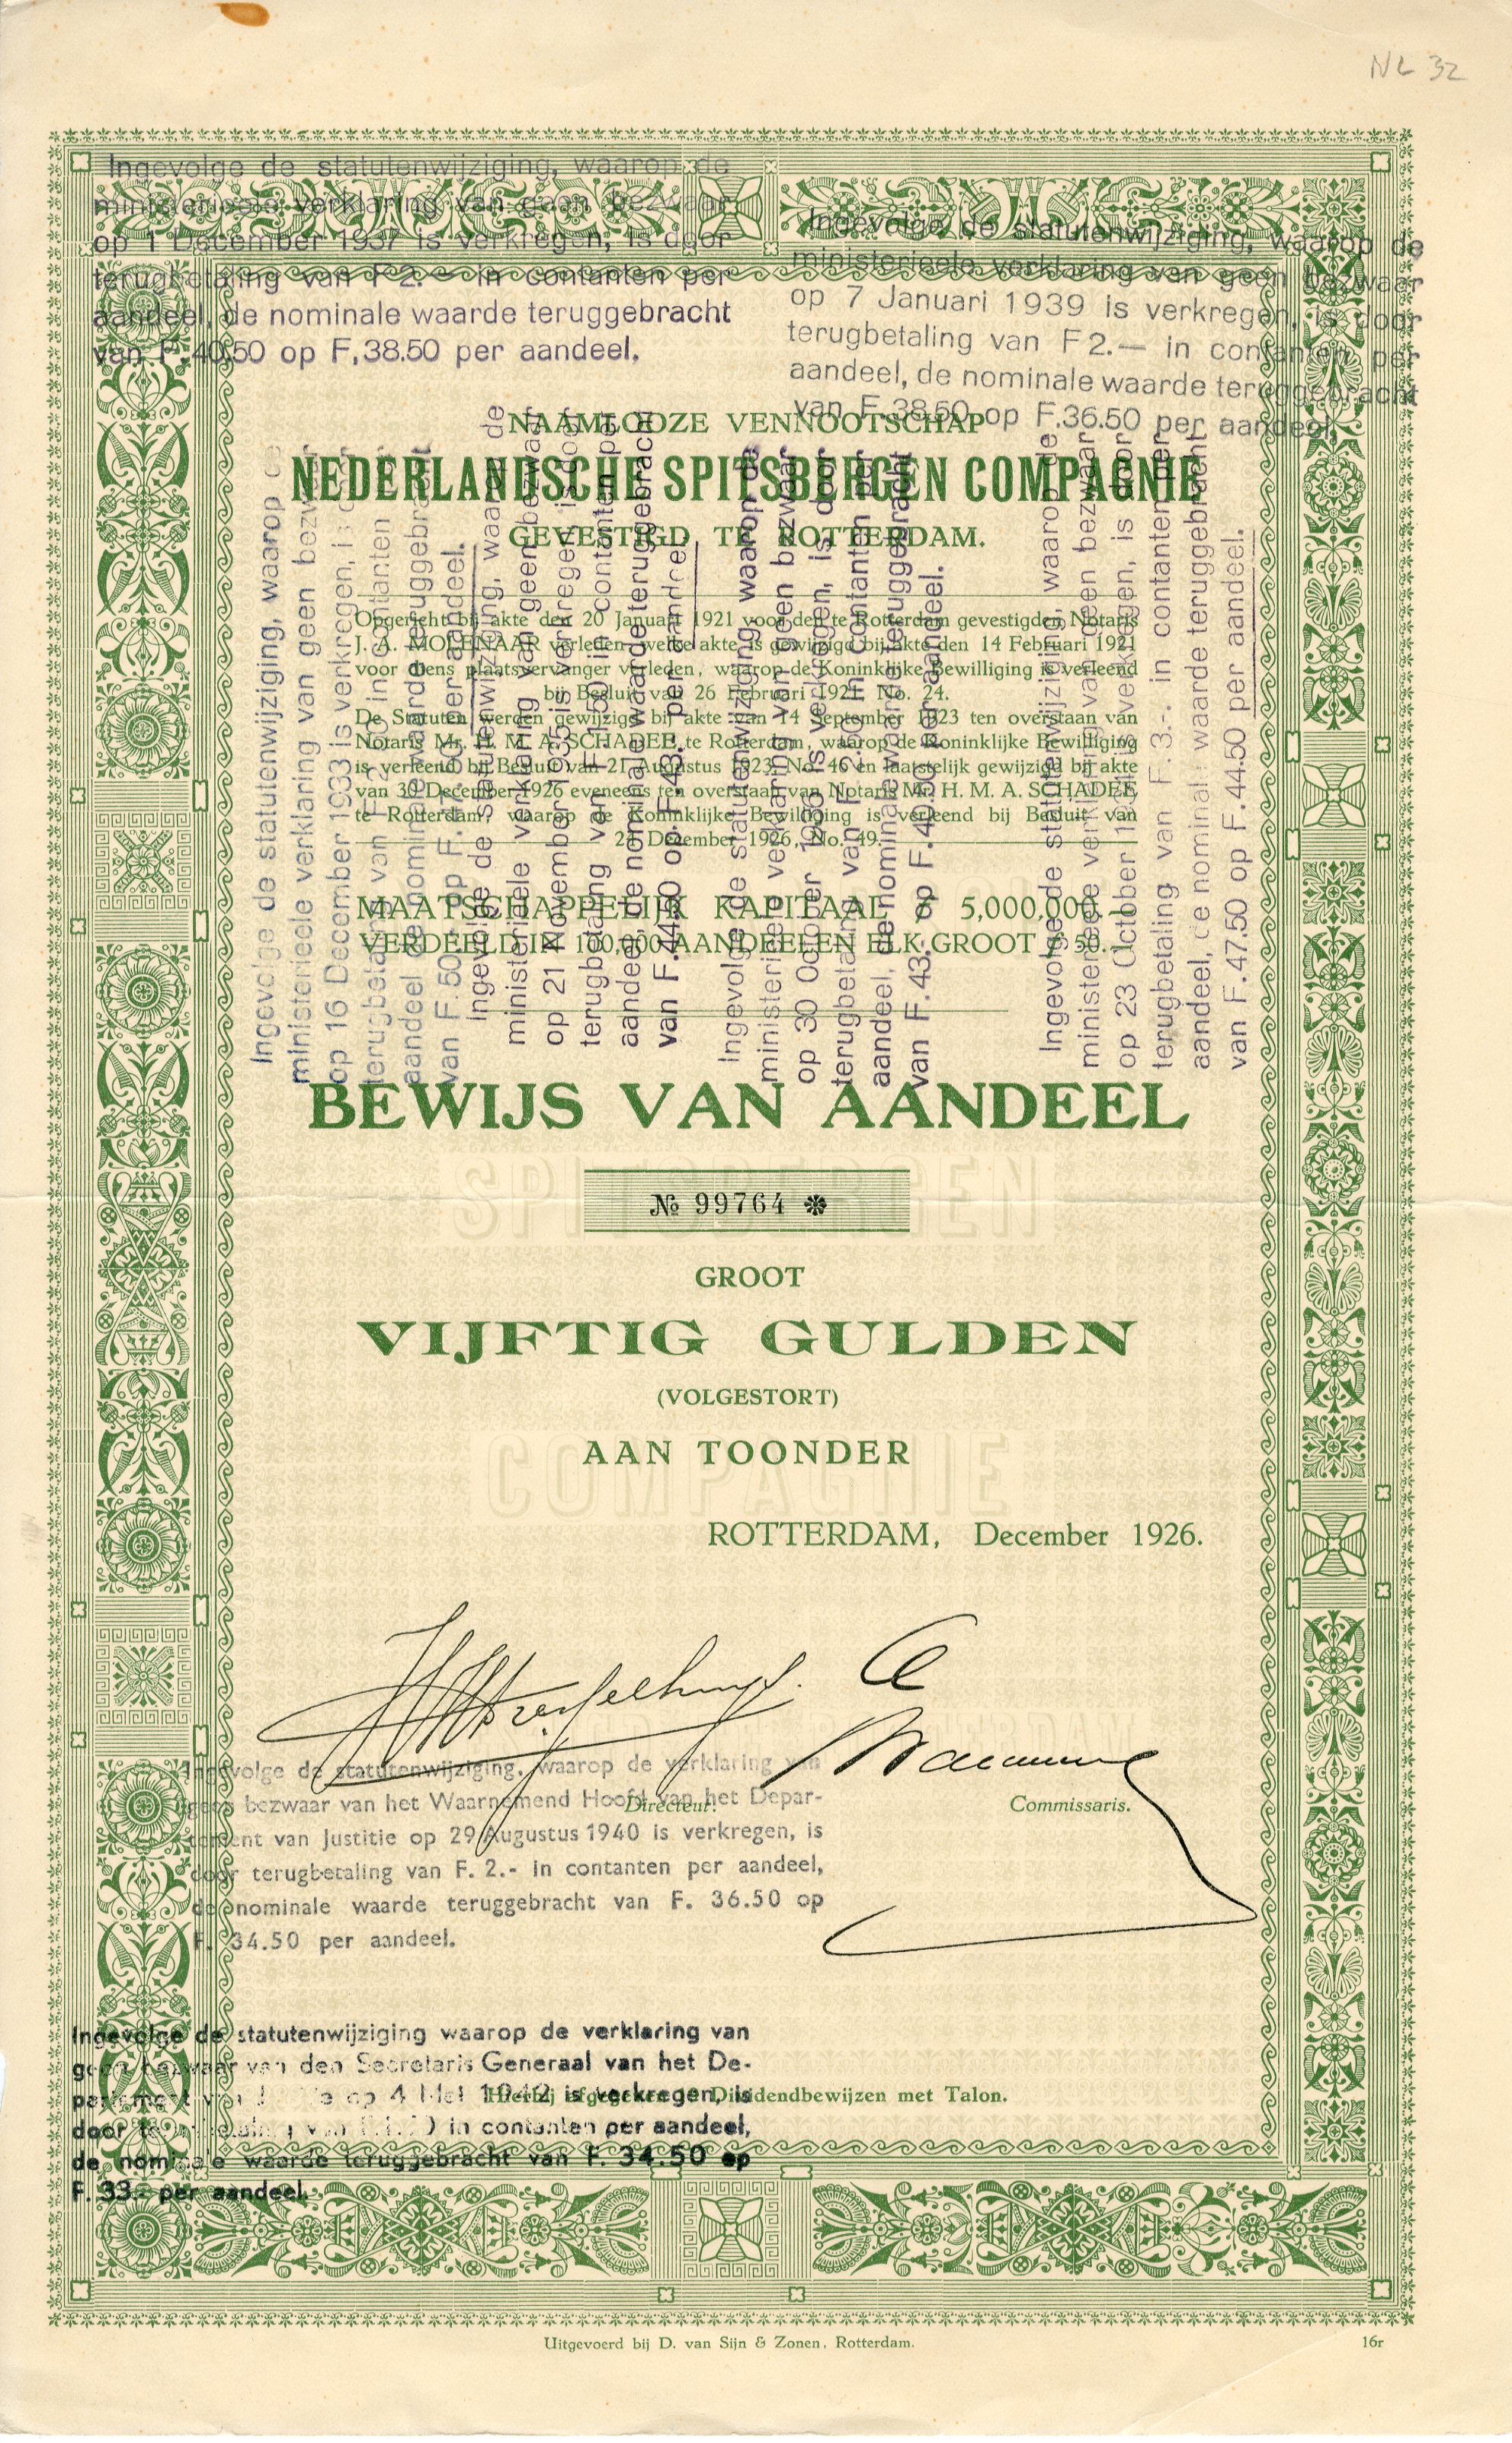 NL 32
Ingevolge de statutenwijziging, waarop de
ministerieele verklaring van geen bezwaar
op 1 December 1937 is verkregen, is door
terugbetaling van F 2.— in contanten per
aandeel, de nominale waarde teruggebracht
van F. 40,50 op F, 38.50 per aandeel.
Ingevolge de statutenwijziging, waarop de
ministerieele verklaring van geen bezwaar
op 7 Januari 1939 is verkregen, is door
terugbetaling van F 2.— in contanten per
aandeel, de nominale waarde teruggebracht
van F. 38.50 op F. 36.50 per aandeel.
NAAMLOOZE VENNOOTSCHAP
NEDERLANDSCHE SPITSBERGEN COMPAGNIE
GEVESTIGD TE ROTTERDAM.
Opgericht bij akte den 20 Januari 1921 voor den te Rotterdam gevestigden Notaris
J. A. MOLENAAR verleden, welke akte is gewijzigd bij akte den 14 Februari 1921
voor diens plaatsvervanger verleden, waarop de Koninklijke Bewilliging is verleend
bij Besluit van 26 Februari 1921, No. 24.
De Statuten werden gewijzigd bij akte van 14 September 1923 ten overstaan van
Notaris Mr. H. M. A. SCHADEE te Rotterdam, waarop de Koninklijke Bewilliging
is verleend bij Besluit van 21 Augustus 1923, No. 46 en laatstelijk gewijzigd bij akte
van 30 December 1926 eveneens ten overstaan van Notaris Mr. H. M. A. SCHADEE
te Rotterdam, waarop de Koninklijke Bewilliging is verleend bij Besluit van
December 1926, No. 49.
MAATSCHAPPELIJK KAPITAAL ƒ 5,000,000.—
VERDEELD IN 100,000 AANDEELEN ELK GROOT ƒ 50.—
Ingevolge de statutenwijziging, waarop de
ministerieele verklaring van geen bezwaar
op 16 December 1933 is verkregen, is
terugbetaling van F. in contanten
aandeel de nominale waarde teruggebracht
van F. 50.- op F. per aandeel.
Ingevolge de statutenwijziging, waarop de
ministerieele verklaring van geen bezwaar
op 21 November 1935 is verkregen is door
terugbetaling van F 1.50 in contanten per
aandeel de nominale waarde teruggebracht
van F. 44.50 op F. 43.- per aandeel
Ingevolge de statutenwijziging waarop de
ministerieele verklaring van geen bezwaar
op 30 October 1936 is verkregen, is door
terugbetaling van F 2.50 in contanten per
aandeel, de nominale waarde teruggebracht
van F. 43.- op F. 40.50 per aandeel.
Ingevolge de statutenwijziging, waarop de
ministerieele verklaring van geen bezwaar
op 23 October is verkregen, is door
terugbetaling van F. 3.-. in contanten per
aandeel, de nominale waarde teruggebracht
van F. 47.50 op F. 44.50 per aandeel.
BEWIJS VAN AANDEEL
SPITSBERGEN
№ 99764 ❋
GROOT
VIJFTIG GULDEN
(VOLGESTORT)
AAN TOONDER
COMPAGNIE
ROTTERDAM, December 1926.
Directeur.
Commissaris.
Ingevolge de statutenwijziging, waarop de verklaring van
geen bezwaar van het Waarnemend Hoofd van het Depar-
tement van Justitie op 29 Augustus 1940 is verkregen, is
door terugbetaling van F. 2.- in contanten per aandeel,
de nominale waarde teruggebracht van F. 36.50 op
F. 34.50 per aandeel.
Ingevolge de statutenwijziging waarop de verklaring van
geen bezwaar van den Secretaris Generaal van het De-
partement van op 4 Mei 1942 is verkregen, is
door terugbetaling van in contanten per aandeel,
de nominale waarde teruggebracht van F. 34.50 op
F. 33.- per aandeel.
Hierbij afgegeven Dividendbewijzen met Talon.
Uitgevoerd bij D. van Sijn & Zonen, Rotterdam.
16r